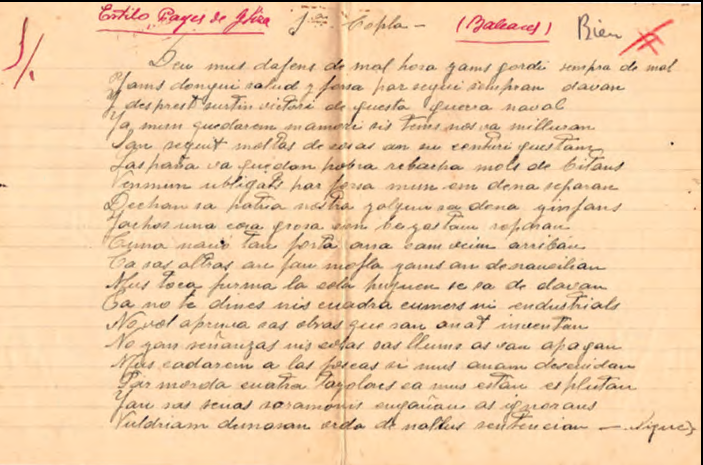 Estilo Pages de Ibiza 1ª Copla — (Baleares) Bien
1/.
Deu mus dafens de mal hora yams gordi sempra de mal
Yams dongui salud y forsa par seguí sempran davan
Y desprest surtin victori de questa guerra naval
Ya mun quedarem mamori sis tems nos va milluran
San seguit moltas de cosas an su centuri questam
Laspaña va quedan pobra rebarha mols de bitans
Venmun ubligats par forsa mun em dena separan
Dechan sa patria nostra y sa dona yinfans
una cosa grosa em
Cuma navíö tan forta ana cam veim arriban
Ca sas altras an fan mofla yams an de navilian
Mus toca furmá la cola se va de davan
Ca no te dines nis cuadra cumers ni endustrials
No vol aprenia sas obras que san anat inventan
No yam señanzas nis colas sas llums as van apagan
Mus cadarem a las foscas si mus anam descuidan
Par morda cuatra ca mus estan esplutan
Yan sas seuas saramonis engañan as ignorans
Vuldriam dunasan orda de nallus sentencian — Sigue